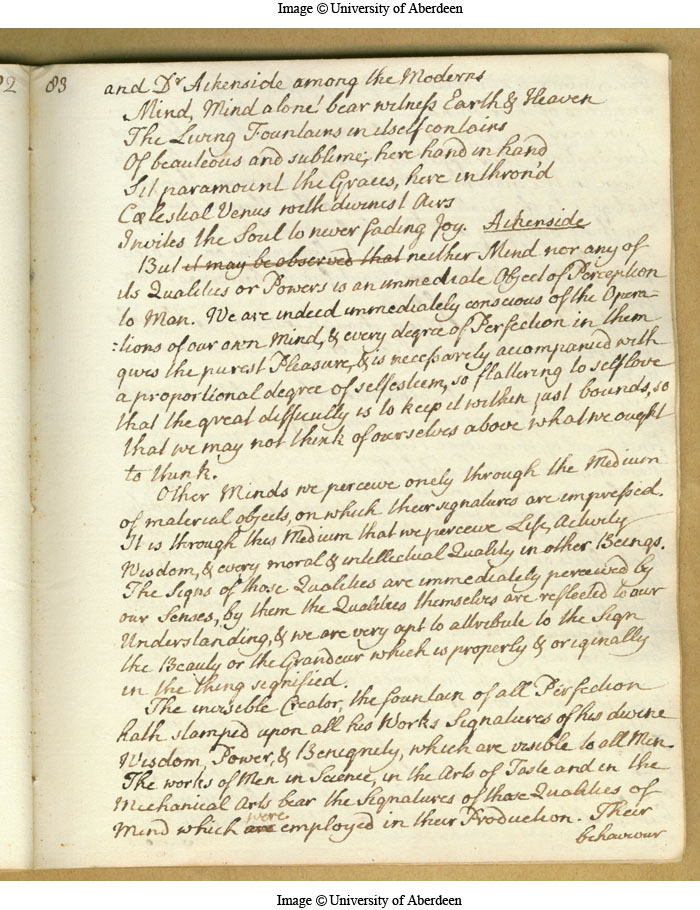 Image © University of Aberdeen
83
and Dr Akenside among the Moderns
Mind, Mind alone! bear witness Earth & Heaven
The Living Fountains in itself contains
Of beauteous and sublime; here hand in hand
Sit paramount the Graces, here inthron'd
Cœlestial Venus with divinest Airs
Invites the Soul to never fading Joy. Akenside
But it may be observed that neither Mind nor any of
its Qualities or Powers is an immediate Object of Perception
to Man. We are indeed immediately conscious of the Opera-
:tions of our own Mind, & every degree of Perfection in them
gives the purest Pleasure, & is necessarely accompanied with
a proportional degree of selfesteem, so flattering to selflove
that the great difficulty is to keep it within just bounds, so
that we may not think of ourselves above what we ought
to think.
Other Minds we perceive onely through the Medium
of material objects, on which their signatures are impressed.
It is through this Medium that we perceive Life, Activity
Wisdom, & every moral & intellectual Quality in other Beings.
The Signs of those Qualities are immediately perceived by
our Senses, by them the Qualities themselves are reflected to our
Understanding, & we are very apt to attribute to the Sign
the Beauty or the Grandeur which is properly & originally
in the thing signified.
The invisible Creator, the fountain of all Perfection
hath stamped upon all his Works Signatures of his divine
Wisdom, Power, & Benignity, which are visible to all Men.
The works of Men in Science, in the Arts of Taste and in the
Mechanical Arts bear the Signatures of those Qualities of
were
Mind which are employed in their Production. Their
behaviour
Image © University of Aberdeen